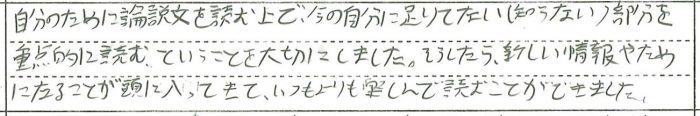 自分のために論説文を読む上で、今の自分に足りてない(知らない)部分を
重点的に読む、ということを大切にしました。そうしたら、新しい情報やため
になることが頭に入ってきて、いつもよりも楽しんで読むことができました。